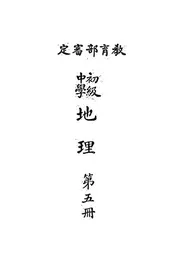 教育部審定
初級中學
地理
第五冊